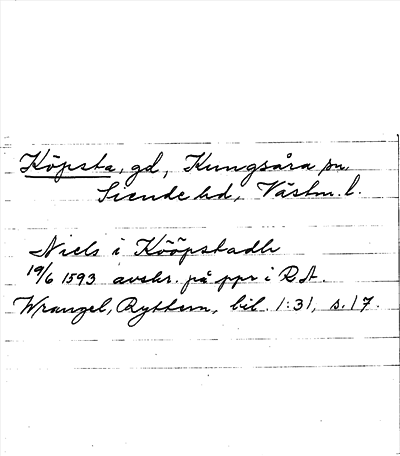 Köpsta, gd, Kungsåra sn
Siende hd, Västm. l.
Niels i Kööpstadh
19/6 1593 avskr. på ppr i RA.
Wrangel, Ryttern, bil. 1:31, s. 17.